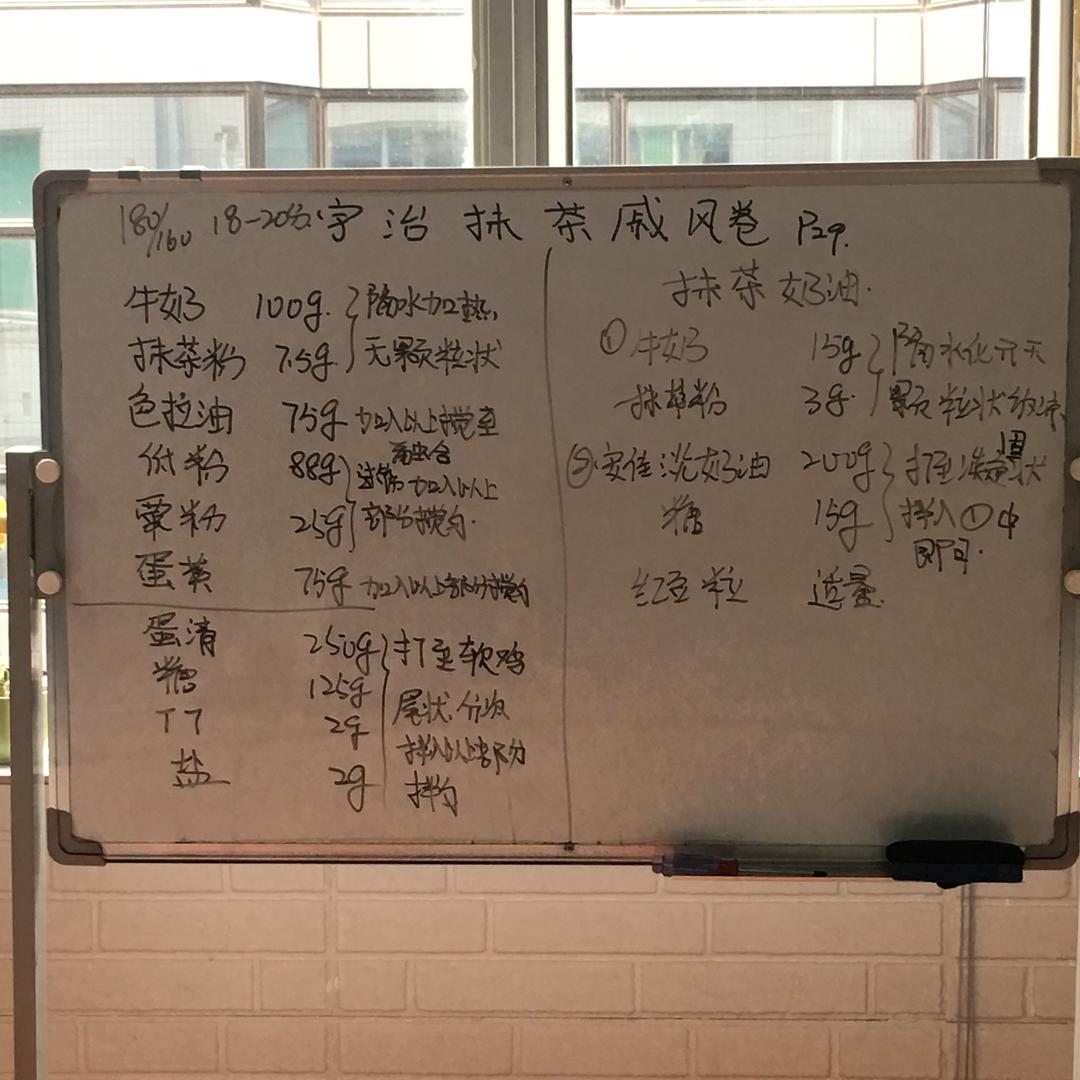 180/160 18-20分 宇治抹茶戚风卷 P29.
牛奶 100g. 隔水加热,
抹茶粉 7.5g 无颗粒状
色拉油 75g 加入以上搅至
融合
低粉 88g 过筛加入以上
粟粉 25g 部分搅匀.
蛋黄 75g 加入以上部分搅匀
蛋清 250g 打至软鸡
糖 125g 尾状.分次
TT 2g 拌入以上部分
盐 2g 拌匀
抹茶奶油.
① 牛奶 15g 隔水化开无
抹茶粉 3g. 颗粒状
② 安佳淡奶油 200g 打至凝固状
糖 15g 拌入①中
即可.
红豆粒 适量.